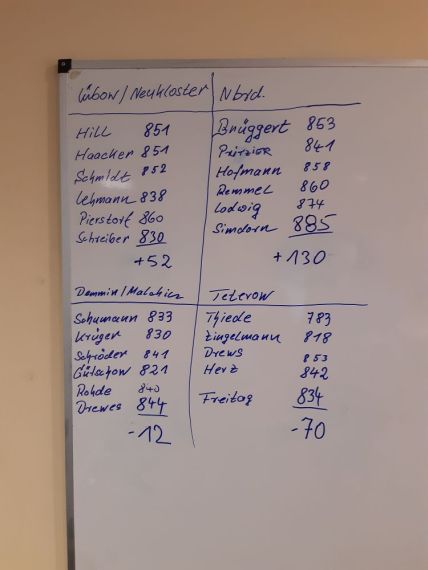 Lübow/Neukloster
Hill 851
Haacker 851
Schmidt 852
Lehmann 838
Pierstorf 860
Schreiber 830
+52
Nbrd.
Brüggert 853
Pritzier 841
Hofmann 858
Remmel 860
Ladwig 874
Simdorn 885
+130
Demmin/Malchin
Schumann 833
Krüger 830
Schröder 841
Gütschow 821
Rohde 840
Drewes 844
-12
Teterow
Thiede 783
Zingelmann 818
Drews 853
Herz 842
Freitag 834
-70